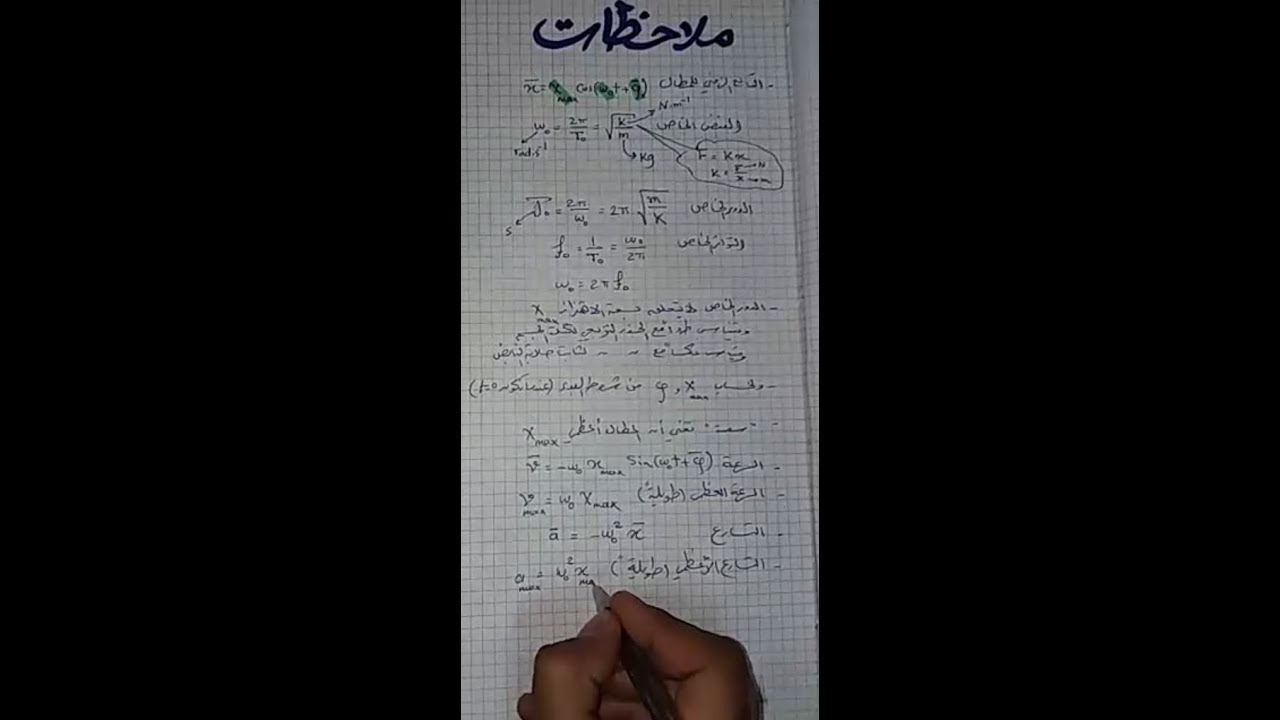 ملاحظات
- التابع الزمني للمطال x̄ = X max cos(ω₀t + φ̄)
والنبض الخاص ω₀ = 2π/T₀ = √(k/m) N.m⁻¹
rad.s⁻¹ kg F = Kx
K = F/x N m
الدور الخاص T₀ = 2π/ω₀ = 2π √(m/K)
s
التواتر الخاص f₀ = 1/T₀ = ω₀/2π
ω₀ = 2π f₀
- الدور الخاص لا يتعلق بسعة الاهتزاز X max
ويتناسب طرداً مع الجذر التربيعي لكتلة الجسم
ويتناسب عكساً مع ~ ~ لثابت صلابة النابض
- ونحسب X max و φ من شروط البدء (عندما يكون t=0)
- "سعة" تعني أن المطال أعظمي X max
- السرعة v̄ = -ω₀ x max sin(ω₀t + φ̄)
- السرعة العظمى (طويلة) v max = ω₀ X max
- التسارع ā = -ω₀² x̄
- التسارع الأعظمي (طويلة) a max = ω₀² x ma